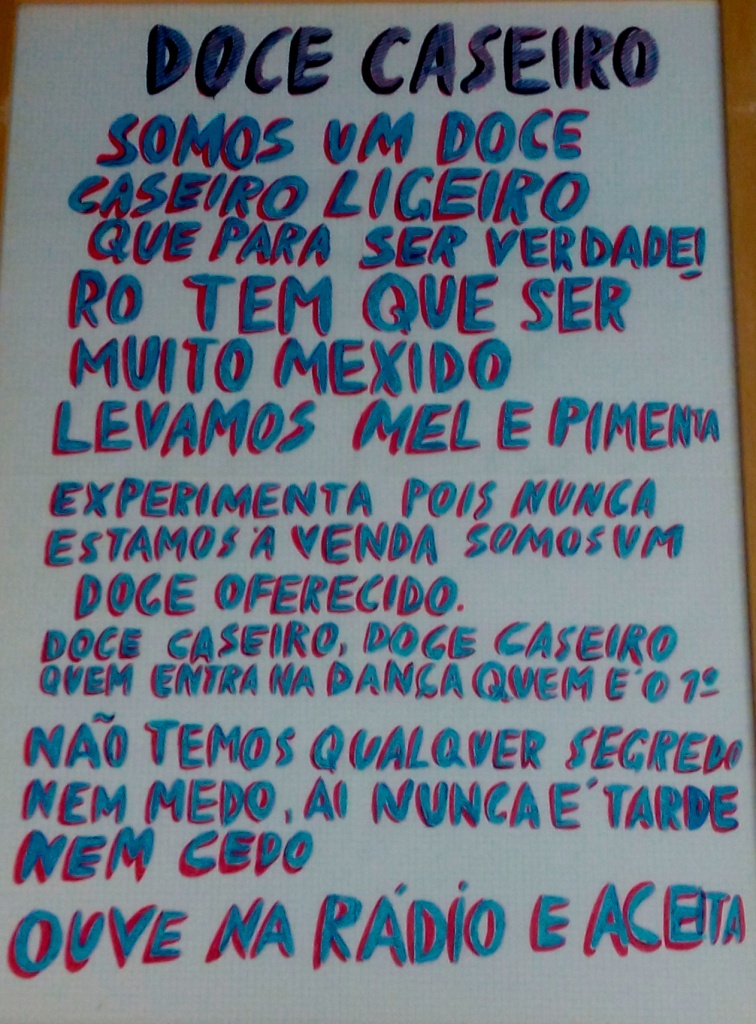 DOCE CASEIRO
SOMOS UM DOCE
CASEIRO LIGEIRO
QUE PARA SER VERDADEI
RO TEM QUE SER
MUITO MEXIDO
LEVAMOS MEL E PIMENTA
EXPERIMENTA POIS NUNCA
ESTAMOS À VENDA SOMOS UM
DOCE OFERECIDO.
DOCE CASEIRO, DOCE CASEIRO
QUEM ENTRA NA DANÇA QUEM É O 1º
NÃO TEMOS QUALQUER SEGREDO
NEM MEDO, AI NUNCA É TARDE
NEM CEDO
OUVE NA RÁDIO E ACEITA